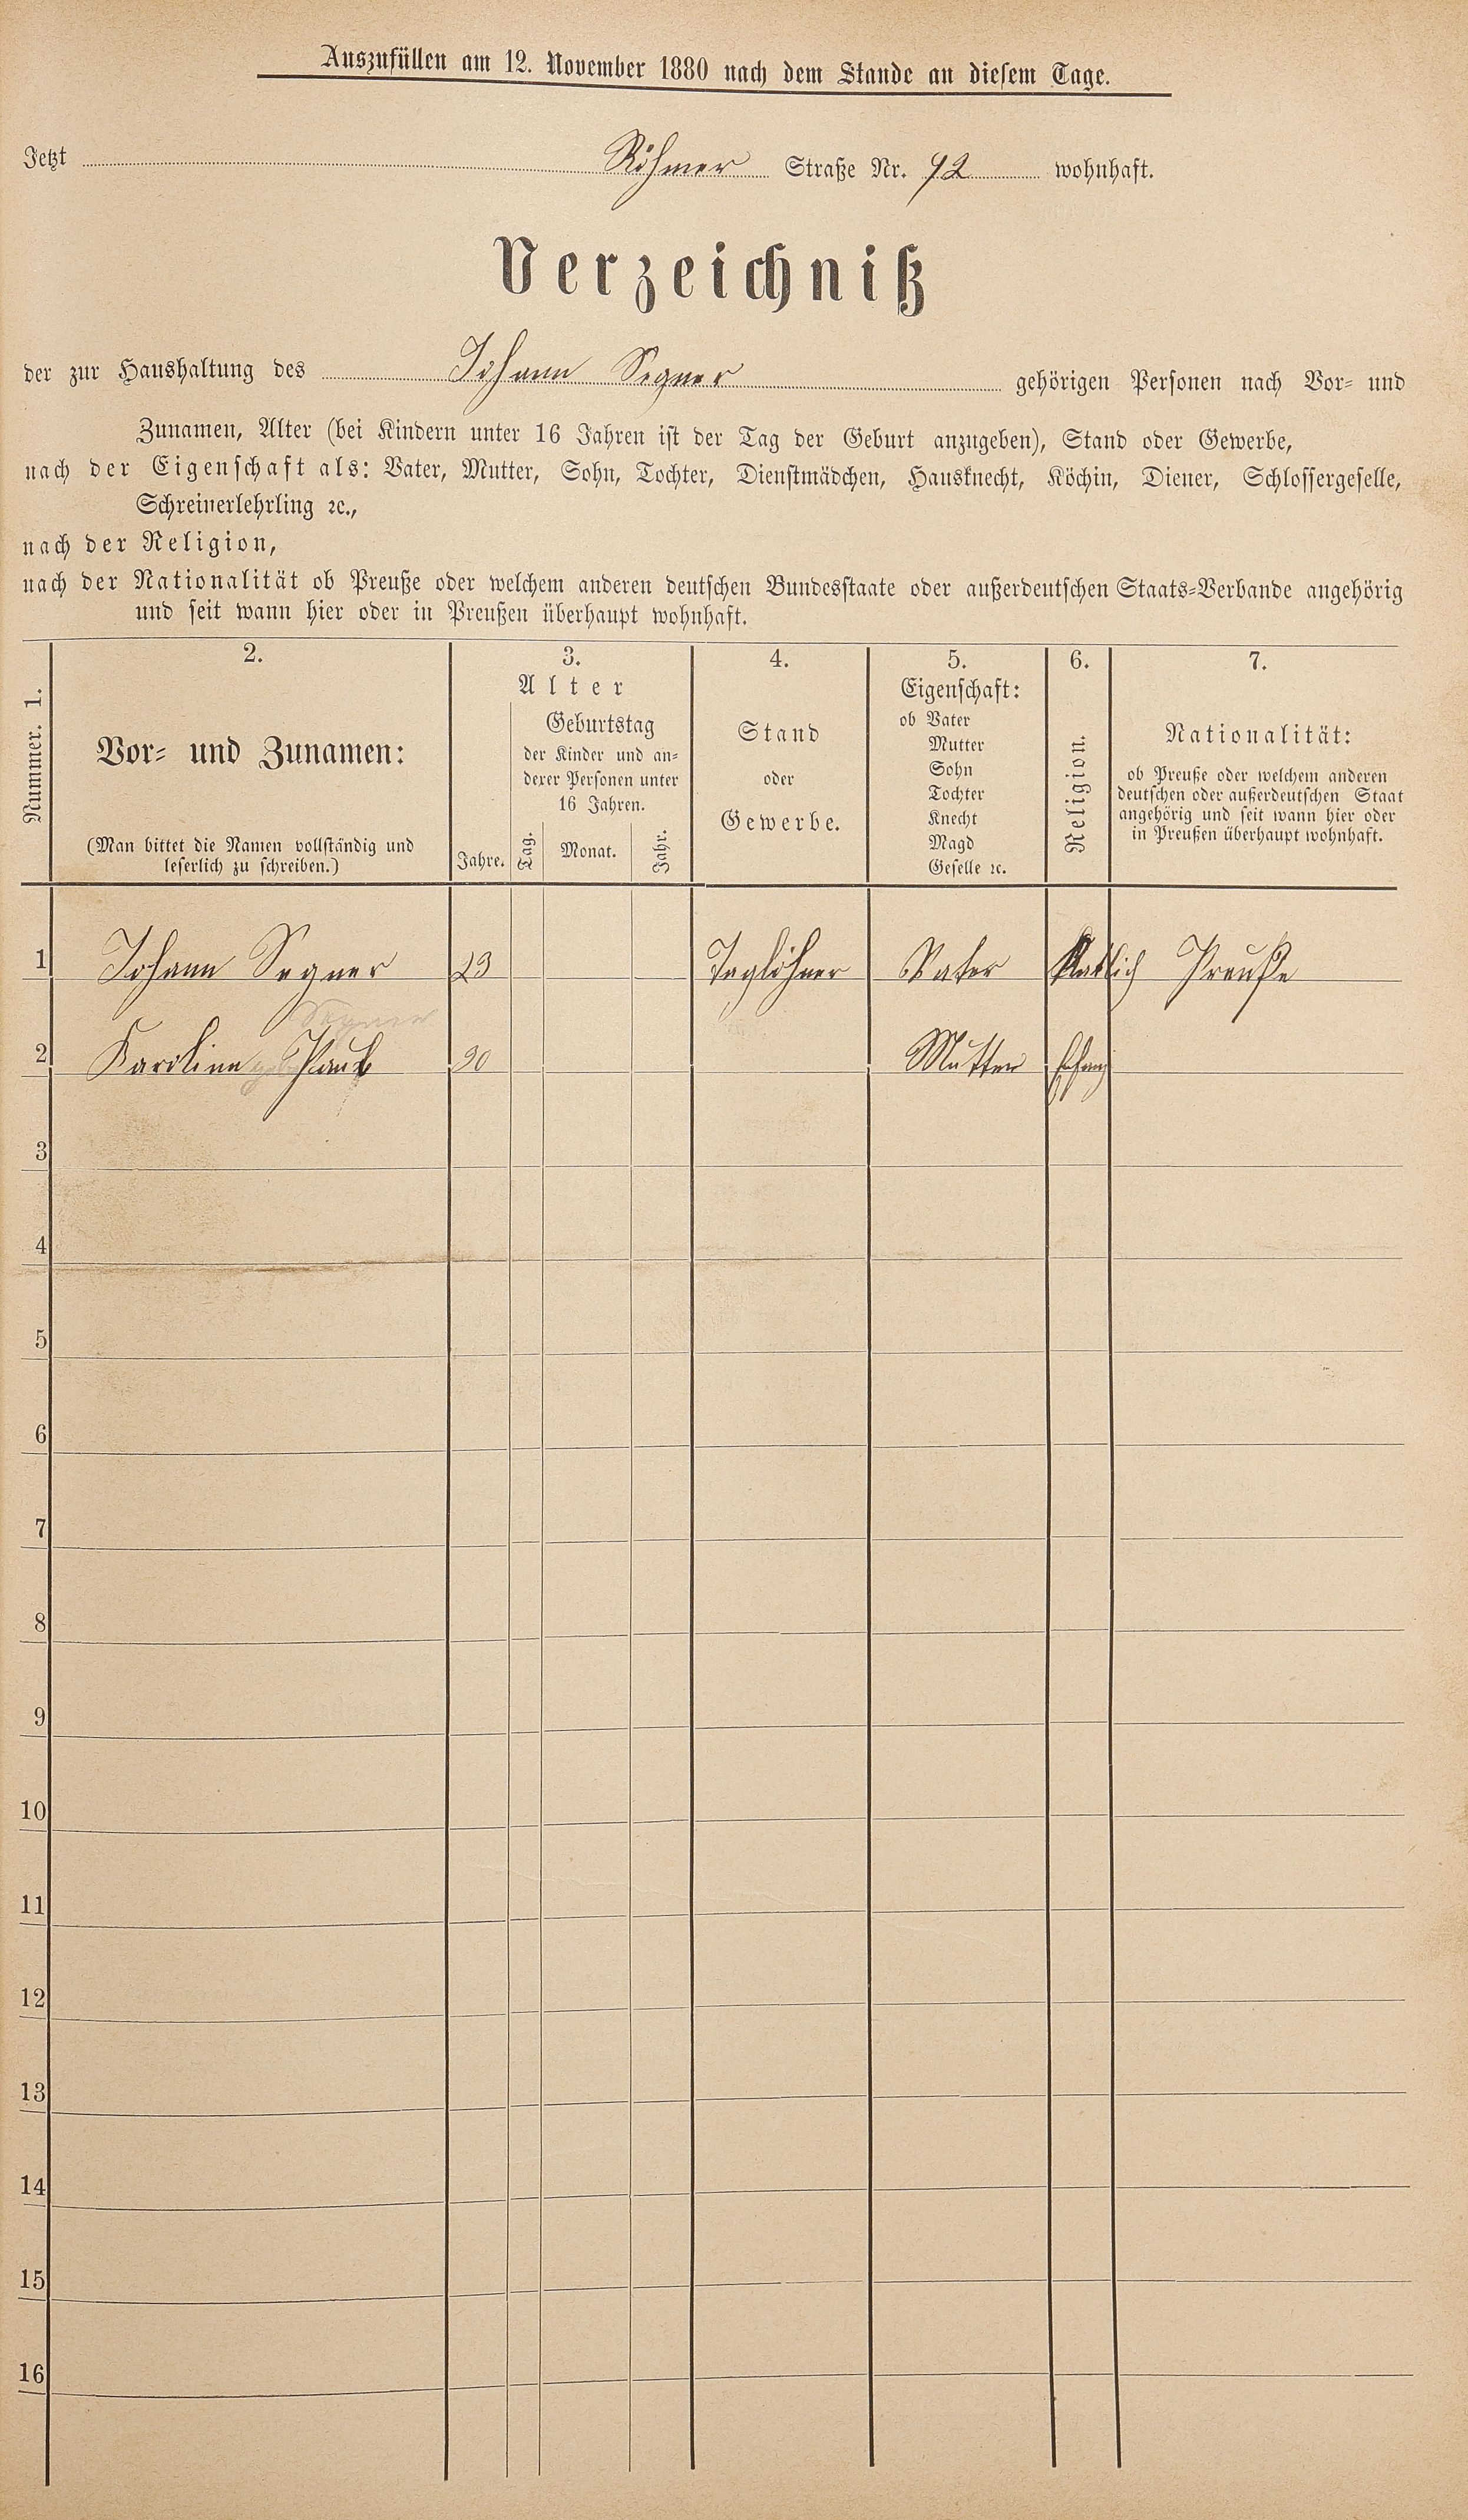 Auszufüllen am 12. November 1880 nach dem Stande an diesem Tage.
Jetzt Röhmer Straße Nr. 92 wohnhaft.
Verzeichniß
der zur Haushaltung des Johann Segner gehörigen Personen nach Vor- und
Zunamen, Alter (bei Kindern unter 16 Jahren ist der Tag der Geburt anzugeben), Stand oder Gewerbe,
nach der Eigenschaft als: Vater, Mutter, Sohn, Tochter, Dienstmädchen, Hausknecht, Köchin, Diener, Schlossergeselle,
Schreinerlehrling ꝛc.,
nach der Religion,
nach der Nationalität ob Preuße oder welchem anderen deutschen Bundesstaate oder außerdeutschen Staats-Verbande angehörig
und seit wann hier oder in Preußen überhaupt wohnhaft.
Nummer. 1.
2.
Vor- und Zunamen:
(Man bittet die Namen vollständig und
leserlich zu schreiben.)
3.
Alter
Jahre.
Geburtstag
der Kinder und an-
derer Personen unter
16 Jahren.
Tag.
Monat.
Jahr.
4.
Stand
oder
Gewerbe.
5.
Eigenschaft:
ob Vater
Mutter
Sohn
Tochter
Knecht
Magd
Geselle ꝛc.
6.
Religion.
7.
Nationalität:
ob Preuße oder welchem anderen
deutschen oder außerdeutschen Staat
angehörig und seit wann hier oder
in Preußen überhaupt wohnhaft.
1 Johann Segner 23 Taglöhner Vater Preuße
Segner
2 Karolina Mutter
3
4
5
6
7
8
9
10
11
12
13
14
15
16